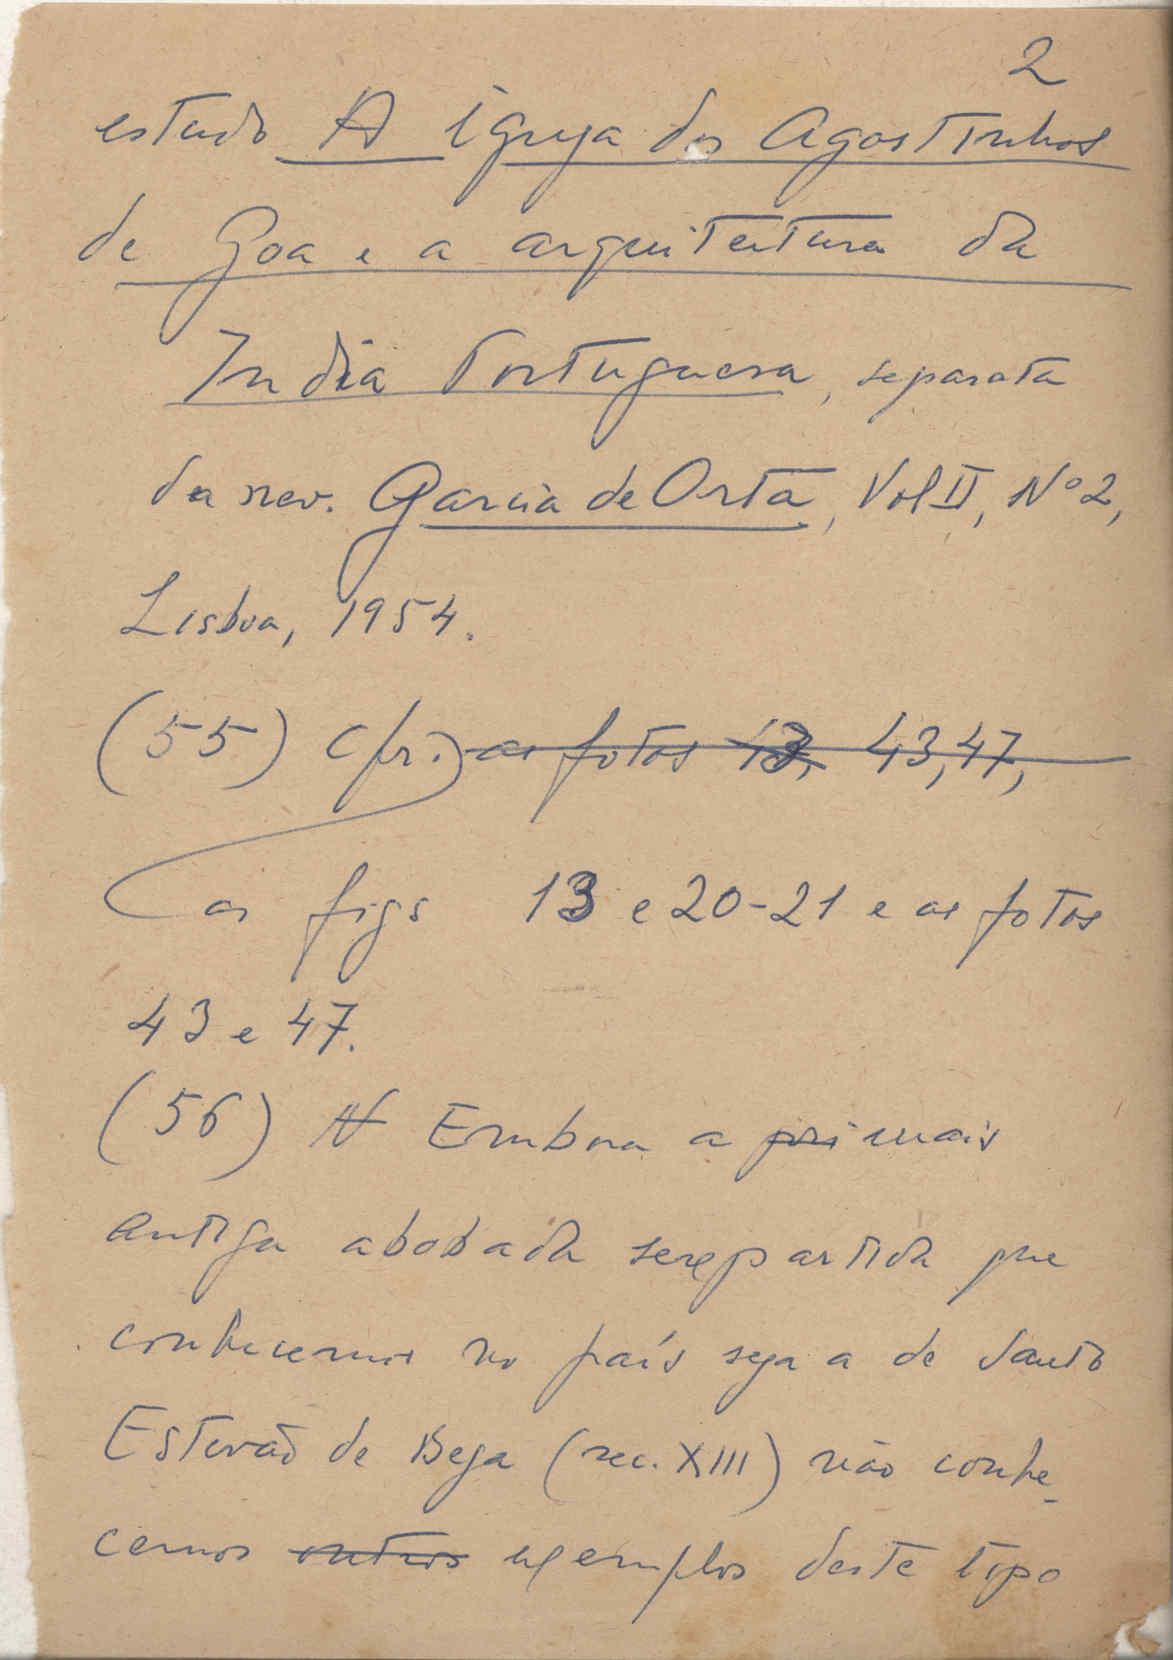 2
estudo A igreja dos Agostinhos
de Goa e a arquitectura da
India Portuguesa, separata
da rev. Garcia de Orta, Vol II, Nº 2,
Lisboa, 1954.
(55) Cfr. as fotos 13, 43, 47,
as figs 13 e 20-21 e as fotos
43 e 47.
(56) N Embora a pri mais
antiga abobada sexpartida que
conhecemos no país seja a de Santo
Estevão de Beja (sec. XIII) não conhe-
cemos outros exemplos deste tipo